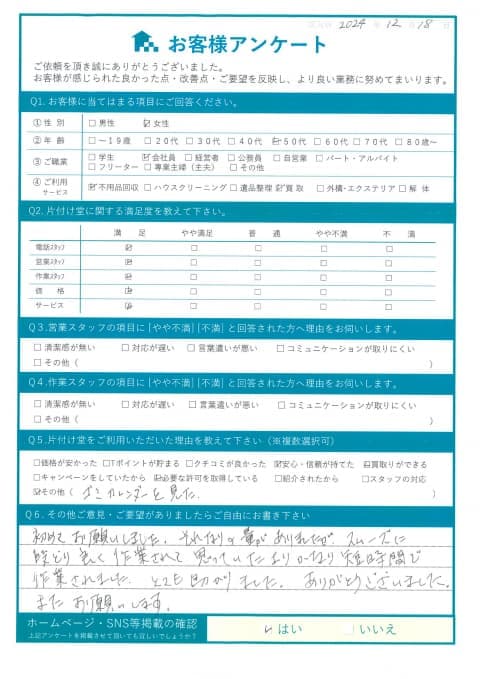 2024 年 12 月 18 日
お客様アンケート
ご依頼を頂き誠にありがとうございました。
お客様が感じられた良かった点・改善点・ご要望を反映し、より良い業務に努めてまいります。
Q1. お客様に当てはまる項目にご回答ください。
①性 別 □男性 ☑女性
②年 齢 □～19歳 □20代 □30代 □40代 ☑50代 □60代 □70代 □80歳～
③ご職業 □学生 ☑会社員 □経営者 □公務員 □自営業 □パート・アルバイト
□フリーター □専業主婦（主夫） □その他
④ご利用サービス ☑不用品回収 □ハウスクリーニング □遺品整理 ☑買取 □外構・エクステリア □解 体
Q2. 片付け堂に関する満足度を教えて下さい。
満 足 やや満足 普 通 やや不満 不 満
電話スタッフ ☑ □ □ □ □
営業スタッフ ☑ □ □ □ □
作業スタッフ ☑ □ □ □ □
価 格 ☑ □ □ □ □
サービス ☑ □ □ □ □
Q３.営業スタッフの項目に[やや不満][不満]と回答された方へ理由をお伺いします。
□清潔感が無い □対応が遅い □言葉遣いが悪い □コミュニケーションが取りにくい
□その他（ ）
Q４.作業スタッフの項目に[やや不満][不満]と回答された方へ理由をお伺いします。
□清潔感が無い □対応が遅い □言葉遣いが悪い □コミュニケーションが取りにくい
□その他（ ）
Q５.片付け堂をご利用いただいた理由を教えて下さい（※複数選択可）
□価格が安かった □Tポイントが貯まる □クチコミが良かった ☑安心・信頼が持てた ☑買取りができる
□キャンペーンをしていたから ☑必要な許可を取得している □紹介されたから □スタッフの対応
☑その他（ ゴミカレンダーを見た. ）
Q６. その他ご意見・ご要望がありましたらご自由にお書き下さい
初めてお願いしました。それなりの量がありましたが スムーズに
段どり良く作業されて 思っていたよりかなり短時間で
作業されました. とても助かりました. ありがとうございました。
またお願いします。
ホームページ・SNS等掲載の確認 ☑はい □いいえ
上記アンケートを掲載させて頂いても宜しいでしょうか？